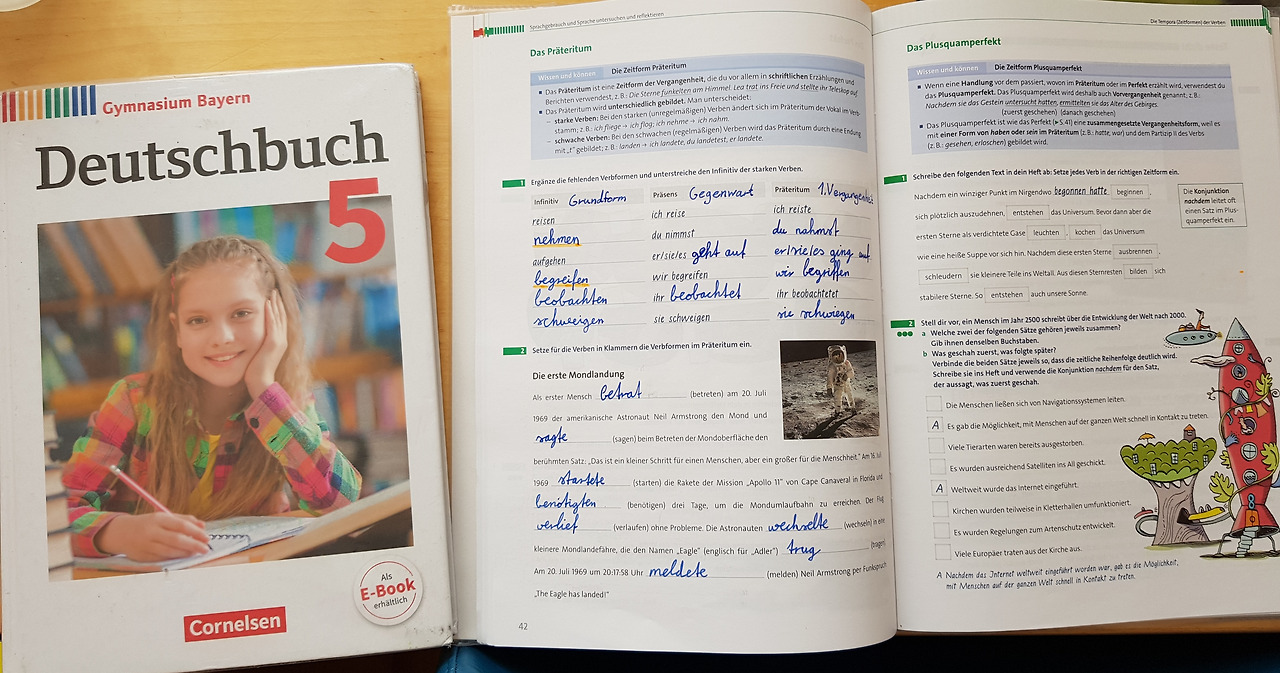 Gymnasium Bayern
Deutschbuch
5
Als
E-Book
erhältlich
Cornelsen
Sprachgebrauch und Sprache untersuchen und reflektieren
Das Präteritum
Wissen und können Die Zeitform Präteritum
Das Präteritum ist eine Zeitform der Vergangenheit, die du vor allem in schriftlichen Erzählungen und
Berichten verwendest, z. B.: Die Sterne funkelten am Himmel. Lea trat ins Freie und stellte ihr Teleskop auf.
Das Präteritum wird unterschiedlich gebildet. Man unterscheidet:
– starke Verben: Bei den starken (unregelmäßigen) Verben ändert sich im Präteritum der Vokal im Verb-
stamm; z. B.: ich fliege → ich flog; ich nehme → ich nahm.
– schwache Verben: Bei den schwachen (regelmäßigen) Verben wird das Präteritum durch eine Endung
mit „t“ gebildet; z. B.: landen → ich landete, du landetest, er landete.
1 Ergänze die fehlenden Verbformen und unterstreiche den Infinitiv der starken Verben.
Infinitiv Grundform Präsens Gegenwart Präteritum 1. Vergangenheit
reisen ich reise ich reiste
nehmen du nimmst du nahmst
aufgehen er/sie/es geht auf er/sie/es ging auf
begreifen wir begreifen wir begriffen
beobachten ihr beobachtet ihr beobachtetet
schweigen sie schweigen sie schwiegen
2 Setze für die Verben in Klammern die Verbformen im Präteritum ein.
Die erste Mondlandung
Als erster Mensch betrat (betreten) am 20. Juli
1969 der amerikanische Astronaut Neil Armstrong den Mond und
sagte (sagen) beim Betreten der Mondoberfläche den
berühmten Satz: „Das ist ein kleiner Schritt für einen Menschen, aber ein großer für die Menschheit.“ Am 16. Juli
1969 startete (starten) die Rakete der Mission „Apollo 11“ von Cape Canaveral in Florida und
benötigten (benötigen) drei Tage, um die Mondumlaufbahn zu erreichen. Der Flug
verlief (verlaufen) ohne Probleme. Die Astronauten wechselte (wechseln) in eine
kleinere Mondlandefähre, die den Namen „Eagle“ (englisch für „Adler“) trug (tragen).
Am 20. Juli 1969 um 20:17:58 Uhr meldete (melden) Neil Armstrong per Funkspruch
„The Eagle has landed!“
42
Die Tempora (Zeitformen) der Verben
Das Plusquamperfekt
Wissen und können Die Zeitform Plusquamperfekt
Wenn eine Handlung vor dem passiert, wovon im Präteritum oder im Perfekt erzählt wird, verwendest du
das Plusquamperfekt. Das Plusquamperfekt wird deshalb auch Vorvergangenheit genannt; z. B.:
Nachdem sie das Gestein untersucht hatten, ermittelten sie das Alter des Gebirges.
(zuerst geschehen) (danach geschehen)
Das Plusquamperfekt ist wie das Perfekt (▸ S. 41) eine zusammengesetzte Vergangenheitsform, weil es
mit einer Form von haben oder sein im Präteritum (z. B.: hatte, war) und dem Partizip II des Verbs
(z. B.: gesehen, erloschen) gebildet wird.
1 Schreibe den folgenden Text in dein Heft ab: Setze jedes Verb in der richtigen Zeitform ein.
Nachdem ein winziger Punkt im Nirgendwo begonnen hatte beginnen ,
sich plötzlich auszudehnen, entstehen das Universum. Bevor dann aber die
ersten Sterne als verdichtete Gase leuchten , kochen das Universum
wie eine heiße Suppe vor sich hin. Nachdem diese ersten Sterne ausbrennen ,
schleudern sie kleinere Teile ins Weltall. Aus diesen Sternresten bilden sich
stabilere Sterne. So entstehen auch unsere Sonne.
Die Konjunktion
nachdem leitet oft
einen Satz im Plus-
quamperfekt ein.
2 Stell dir vor, ein Mensch im Jahr 2500 schreibt über die Entwicklung der Welt nach 2000.
a Welche zwei der folgenden Sätze gehören jeweils zusammen?
Gib ihnen denselben Buchstaben.
b Was geschah zuerst, was folgte später?
Verbinde die beiden Sätze jeweils so, dass die zeitliche Reihenfolge deutlich wird.
Schreibe sie ins Heft und verwende die Konjunktion nachdem für den Satz,
der aussagt, was zuerst geschah.
Die Menschen ließen sich von Navigationssystemen leiten.
A Es gab die Möglichkeit, mit Menschen auf der ganzen Welt schnell in Kontakt zu treten.
Viele Tierarten waren bereits ausgestorben.
Es wurden ausreichend Satelliten ins All geschickt.
A Weltweit wurde das Internet eingeführt.
Kirchen wurden teilweise in Kletterhallen umfunktioniert.
Es wurden Regelungen zum Artenschutz entwickelt.
Viele Europäer traten aus der Kirche aus.
A Nachdem das Internet weltweit eingeführt worden war, gab es die Möglichkeit,
mit Menschen auf der ganzen Welt schnell in Kontakt zu treten.